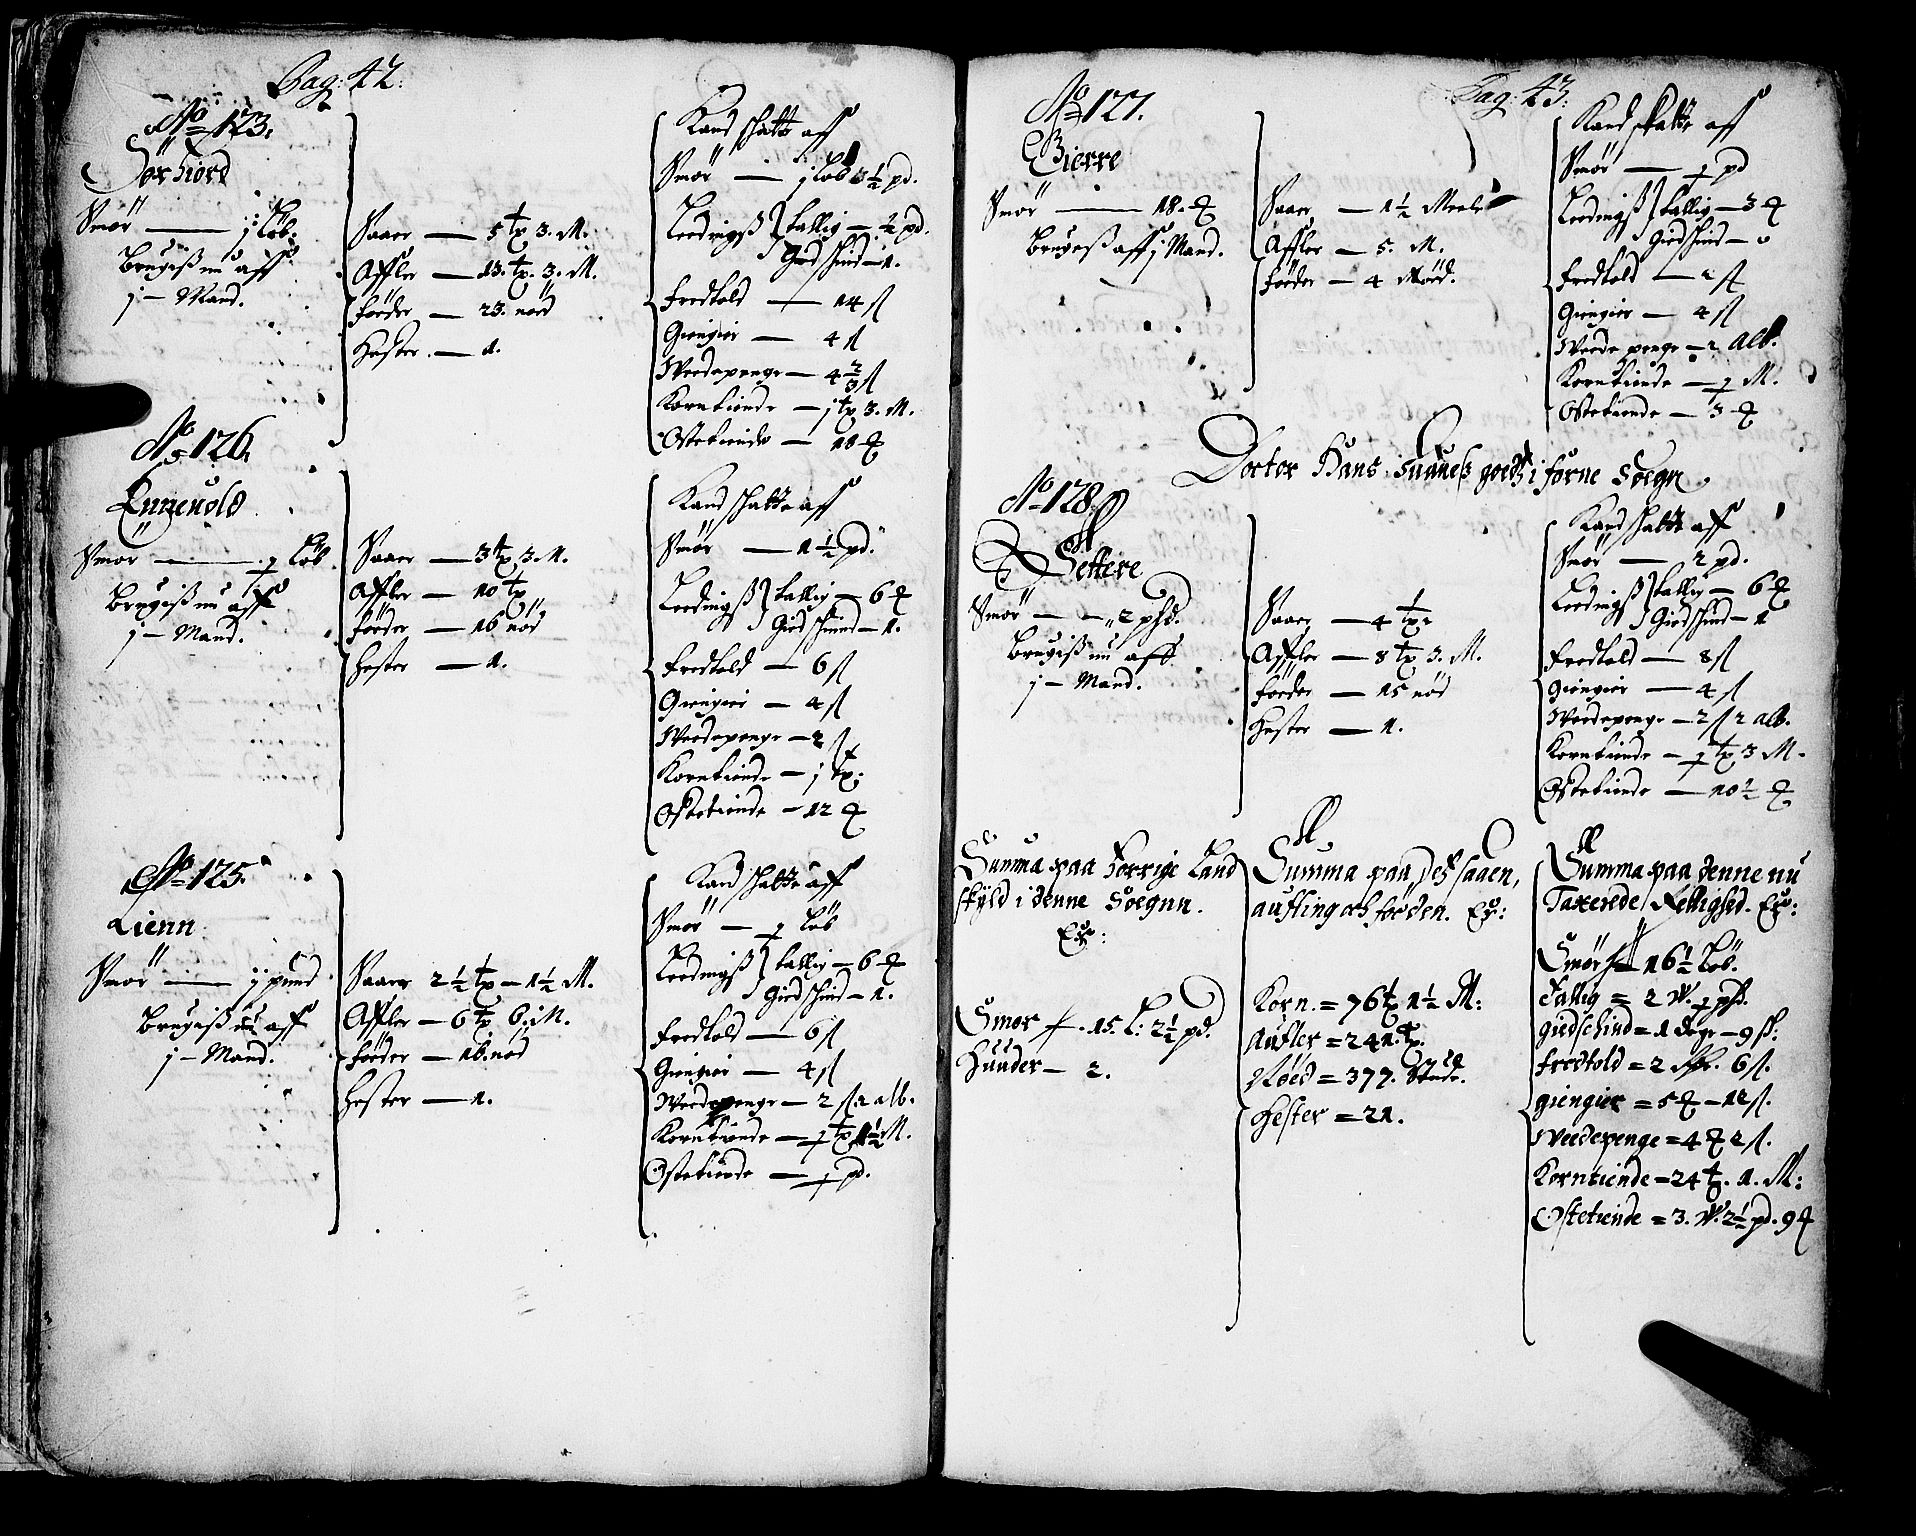 Pag: 42.
No 123.
Sørfiord
Smør — j Løb.
Brugiss nu aff
j — Mand.
Saaer — 5 tr 3. M.
Affler — 13. tr. 3. M.
Föeder — 23. nöed
Hester — 1.
Kand schatte aff
Smör — j löb 3½ pd.
Leedingss } Kallig — 2 pd.
Gied schind — 1.
Fredtold — 14 sl
Giengier — 4 sl
Weedepenge — 4 2/3 sl
Korntiende — j tr 3. M.
Ostetiende — 18 ₰
No 126.
Ennevold
Smør — 1 Løb.
Brugiss nu aff
j — Mand.
Saaer — 3 tr 3. M.
Affler — 10 tr
föeder — 16 nöd
Hester — 1.
Kand schatte aff
Smör — 1½ pd.
Leedingss } Kallig — 6 ₰
Gied schind — 1.
Fredtold — 6 sl
Giengier — 4 sl
Weedepenge — 2 sl
Korntiende — j tr.
Ostetiende — 12 ₰
No 125.
Lienn
Smör — ij pund
Brugiss nu aff
j — Mand.
Saaer 2½ tr — 1½ M.
Affler — 6 tr 6. M.
föeder — 16. nöd
Hester — 1.
Kand schatte aff
Smör — 1 Löb
Leedingss } Kallig — 6 ₰
Gied schind — 1.
Fredtold — 6 sl
Giengier — 4 sl
Weedepenge — 2 sl 2 alb.
Korntiende — 1 tr 1½ M.
Ostetiende — 1 pd.
Pag: 43.
No 127.
Bierre
Smør — 18. ₰
Brugess aff j Mand.
Saaer — 1½ Meele
Affler — 5. M.
föeder — 4 Nöed.
Kand skatte aff
Smör — 1 pd
Leedingss } Kallig — 3 ₰
Giedschind — 0
Fredtold — 2 sl
Giengier — 4 sl
Weede penge — 2 alb.
Korntiende — 1 M.
Ostetiende — 3 ₰
Doctor Hans goeds i forne Soegn
No 128.
Settere
Smör — 2 phd.
Brugiss nu aff
j — Mand.
Saaer — 4 tr
Affler — 8 tr 3. M.
föeder — 15 nöd
Hester — 1.
Kand schatte aff
Smör — 2 pd.
Leedingss } Kallig — 6 ₰
Giedschind — 1
Fredtold — 8 sl
Giengier — 4 sl
Weedepenge — 2 sl 2 alb.
Korntiende — 1 tr 3 M.
Ostetiende — 10½ ₰
Summa paa Forrige Land
skyld i denne Soegnn.
Er:
Smør — 15. L: 2½ pd.
Huuder — 2.
Summa paa dess saaen,
aufling och foeden. Er:
Korn. = 76 tr 1½ M:
Aufler = 241. tr.
Nöed = 377. Stüch.
Hester = 21.
Summa paa denne nu
Taxerede Rettighed. Er:
Smör — 16½ Löb.
Tallig = 2 W. 1 phd.
giedschind = 1 degr — 9 sk.
Fredtold = 2 6 sl.
giengier = 5 ₰ — 12 sl.
Weedepenge = 4 ₰ 2 sl.
Korntiende = 24 tr. 1. M:
Ostetiende = 3. W. 2½ pd. 9 ₰